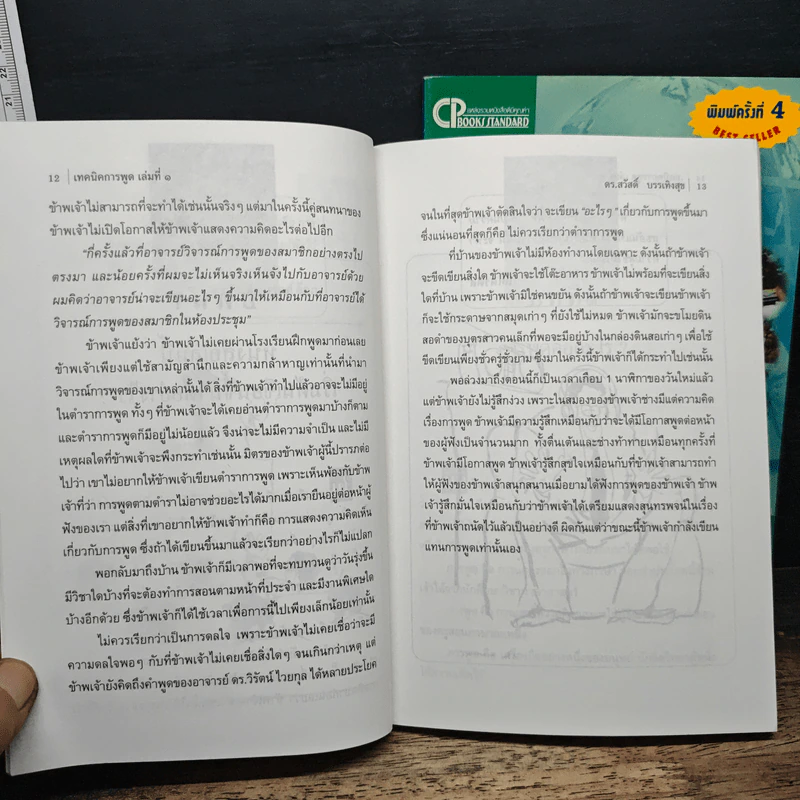 22
21
CP
แหล่งรวมหนังสือดีมีคุณค่า
BOOKS STANDARD
พิมพ์ครั้งที่ 4
BEST SELLER
12 | เทคนิคการพูด เล่มที่ ๑
ข้าพเจ้าไม่สามารถที่จะทำได้เช่นนั้นจริงๆ แต่มาในครั้งนี้คู่สนทนาของ
ข้าพเจ้าไม่เปิดโอกาสให้ข้าพเจ้าแสดงความคิดอะไรต่อไปอีก
"กี่ครั้งแล้วที่อาจารย์วิจารณ์การพูดของสมาชิกอย่างตรงไป
ตรงมา และน้อยครั้งที่ผมจะไม่เห็นจริงเห็นจังไปกับอาจารย์ด้วย
ผมคิดว่าอาจารย์น่าจะเขียนอะไรๆ ขึ้นมาให้เหมือนกับที่อาจารย์ได้
วิจารณ์การพูดของสมาชิกในห้องประชุม"
ข้าพเจ้าแย้งว่า ข้าพเจ้าไม่เคยผ่านโรงเรียนฝึกพูดมาก่อนเลย
ข้าพเจ้าเพียงแต่ใช้สามัญสำนึกและความกล้าหาญเท่านั้นที่นำมา
วิจารณ์การพูดของเขาเหล่านั้นได้ สิ่งที่ข้าพเจ้าทำไปแล้วอาจจะไม่มีอยู่
ในตำราการพูด ทั้งๆ ที่ข้าพเจ้าจะได้เคยอ่านตำราการพูดมาบ้างก็ตาม
และตำราการพูดก็มีอยู่ไม่น้อยแล้ว จึงน่าจะไม่มีความจำเป็น และไม่มี
เหตุผลใดที่ข้าพเจ้าจะพึงกระทำเช่นนั้น มิตรของข้าพเจ้าผู้นี้ปรารภต่อ
ไปว่า เขาไม่อยากให้ข้าพเจ้าเขียนตำราการพูด เพราะเห็นพ้องกับข้าพ
เจ้าที่ว่า การพูดตามตำราไม่อาจช่วยอะไรได้มากเมื่อเรายืนอยู่ต่อหน้าผู้
ฟังของเรา แต่สิ่งที่เขาอยากให้ข้าพเจ้าทำก็คือ การแสดงความคิดเห็น
เกี่ยวกับการพูด ซึ่งถ้าได้เขียนขึ้นมาแล้วจะเรียกว่าอย่างไรก็ไม่แปลก
พอกลับมาถึงบ้าน ข้าพเจ้าก็มีเวลาพอที่จะทบทวนดูว่าวันรุ่งขึ้น
มีวิชาใดบ้างที่จะต้องทำการสอนตามหน้าที่ประจำ และมีงานพิเศษใด
บ้างอีกด้วย ซึ่งข้าพเจ้าก็ได้ใช้เวลาเพื่อการนี้ไปเพียงเล็กน้อยเท่านั้น
ไม่ควรเรียกว่าเป็นการดลใจ เพราะข้าพเจ้าไม่เคยเชื่อว่าจะมี
ความดลใจพอๆ กับที่ข้าพเจ้าไม่เคยเชื่อสิ่งใดๆ จนเกินกว่าเหตุ แต่
ข้าพเจ้ายังคิดถึงคำพูดของอาจารย์ ดร.วิรัตน์ ไวยกุล ได้หลายประโยค
ดร.สวัสดิ์ บรรเทิงสุข | 13
จนในที่สุดข้าพเจ้าตัดสินใจว่า จะเขียน "อะไรๆ" เกี่ยวกับการพูดขึ้นมา
ซึ่งแน่นอนที่สุดก็คือ ไม่ควรเรียกว่าตำราการพูด
ที่บ้านของข้าพเจ้าไม่มีห้องทำงานโดยเฉพาะ ดังนั้นถ้าข้าพเจ้า
จะขีดเขียนสิ่งใด ข้าพเจ้าจะใช้โต๊ะอาหาร ข้าพเจ้าไม่พร้อมที่จะเขียนสิ่ง
ใดที่บ้าน เพราะข้าพเจ้ามิใช่คนขยัน ดังนั้นถ้าข้าพเจ้าจะเขียนข้าพเจ้า
ก็จะใช้กระดาษจากสมุดเก่าๆ ที่ยังใช้ไม่หมด ข้าพเจ้ามักจะขโมยดิน
สอดำของบุตรสาวคนเล็กที่พอจะมีอยู่บ้างในกล่องดินสอเก่าๆ เพื่อใช้
ขีดเขียนเพียงชั่วครู่ชั่วยาม ซึ่งมาในครั้งนี้ข้าพเจ้าก็ได้กระทำไปเช่นนั้น
พอล่วงมาถึงตอนนี้ก็เป็นเวลาเกือบ 1 นาฬิกาของวันใหม่แล้ว
แต่ข้าพเจ้ายังไม่รู้สึกง่วง เพราะในสมองของข้าพเจ้าช่างมีแต่ความคิด
เรื่องการพูด ข้าพเจ้ามีความรู้สึกเหมือนกับว่าจะได้มีโอกาสพูดต่อหน้า
ของผู้ฟังเป็นจำนวนมาก ทั้งตื่นเต้นและช่างท้าทายเหมือนทุกครั้งที่
ข้าพเจ้ามีโอกาสพูด ข้าพเจ้ารู้สึกสุขใจเหมือนกับที่ข้าพเจ้าสามารถทำ
ให้ผู้ฟังของข้าพเจ้าสนุกสนานเมื่อยามได้ฟังการพูดของข้าพเจ้า ข้าพ
เจ้ารู้สึกมั่นใจเหมือนกับว่าข้าพเจ้าได้เตรียมแสดงสุนทรพจน์ในเรื่อง
ที่ข้าพเจ้าถนัดไว้แล้วเป็นอย่างดี ผิดกันแต่ว่าขณะนี้ข้าพเจ้ากำลังเขียน
แทนการพูดเท่านั้นเอง